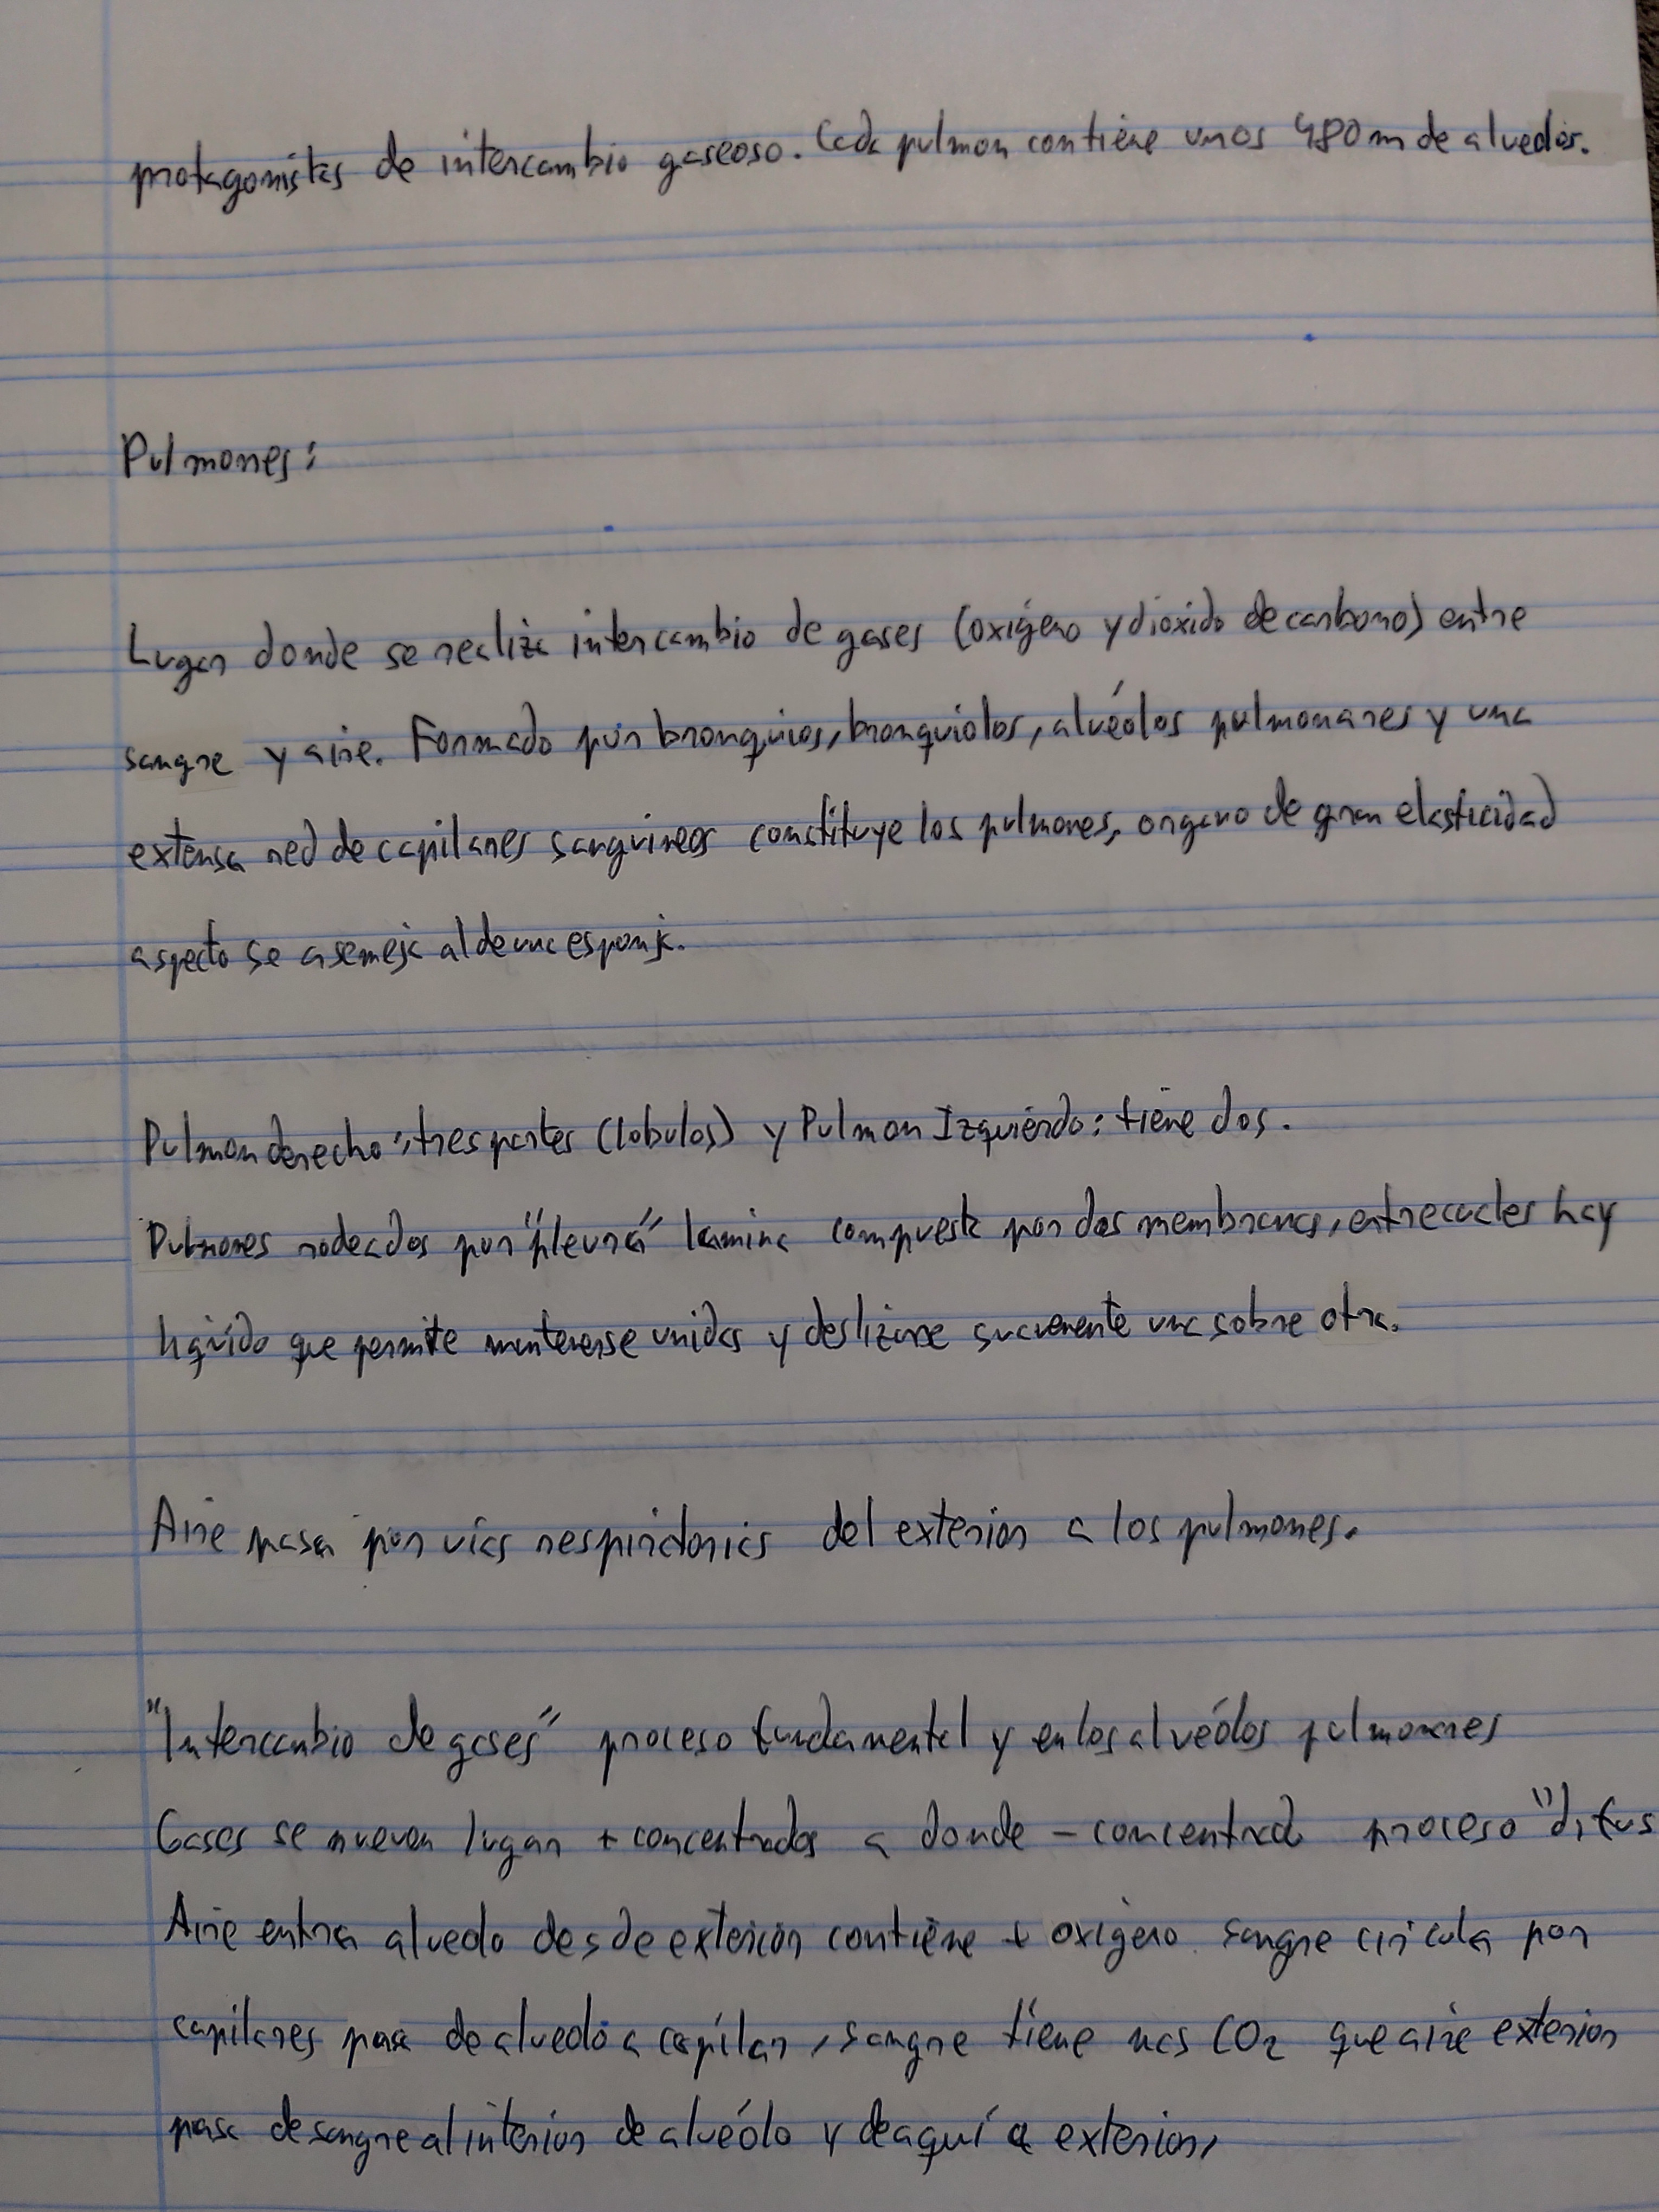 protagonistas de intercambio gaseoso. Cada pulmon contiene unos 480 m de alveolos.
Pulmones:
Lugar donde se realiza intercambio de gases (oxígeno y dioxido de carbono) entre
sangre y aire. Formado por bronquios, bronquiolos, alvéolos pulmonares y una
extensa red de capilares sanguineos constituye los pulmones, organo de gran elasticidad
aspecto se asemeja al de una esponja.
Pulmon derecho: tres partes (lobulos) y Pulmon Izquierdo: tiene dos.
Pulmones rodeados por "pleura" lamina compuesta por dos membranas, entre cuales hay
liquido que permite mantenerse unidas y deslizarse suavemente una sobre otra.
Aire pasa por vías respiratorias del exterior a los pulmones.
"Intercambio de gases" proceso fundamental y en los alvéolos pulmonares
Gases se mueven lugar + concentrados a donde - concentrado proceso "difus
Aire entra alveolo desde exterior contiene + oxigeno sangre circula por
capilares pasa de alveolo a capilar, sangre tiene mas CO2 que aire exterior
pasa de sangre al interior de alvéolo y de aquí a exterior,